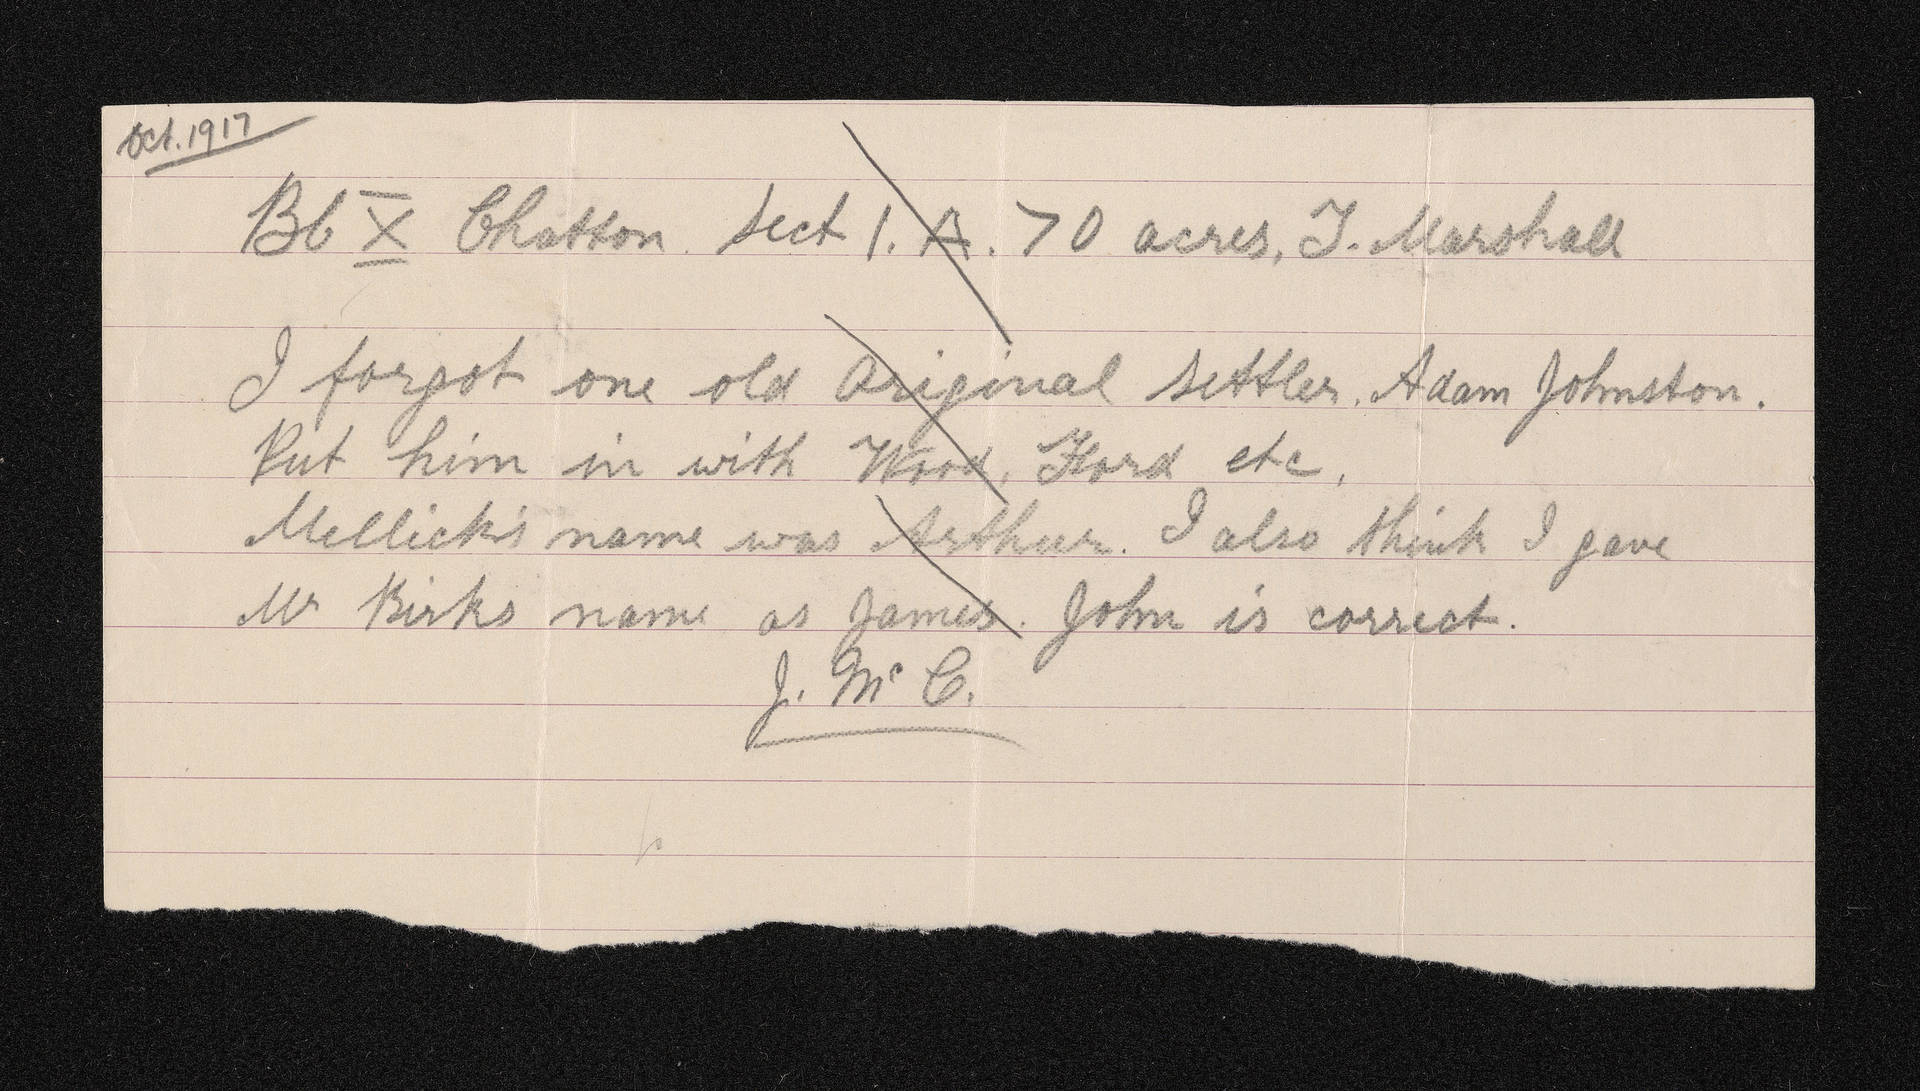 Oct. 1917
Bb X Chatton. Sect 1. A. 70 acres, T. Marshall
I forgot one old Original settler. Adam Johnston.
Put him in with Wood, Ford etc,
Mellick's name was Arthur. I also think I gave
Mr Birks name as James. John is correct.
J. McC.